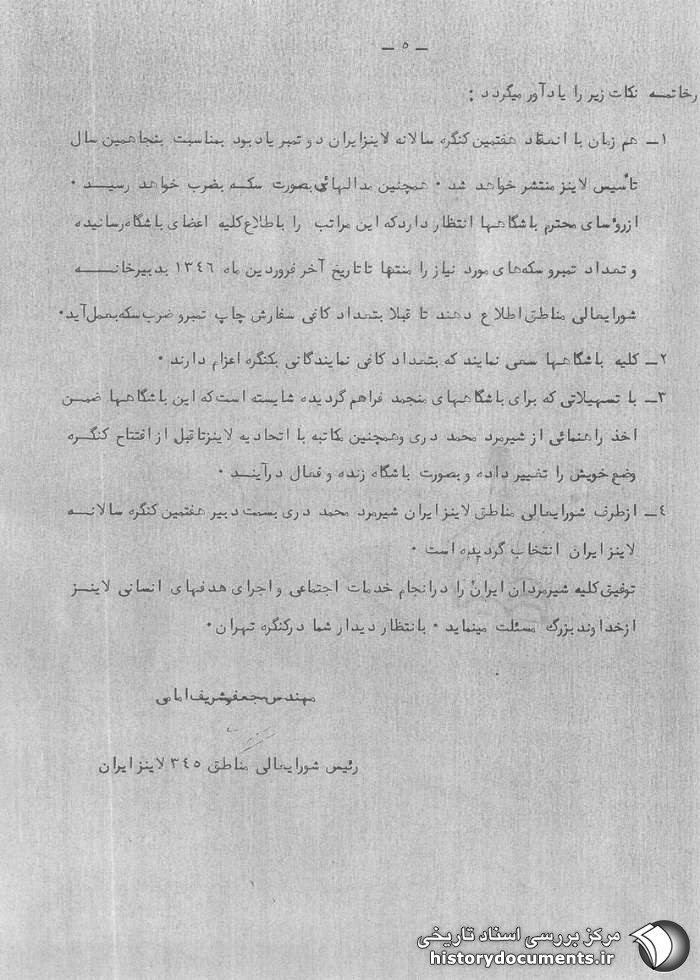 ـ ٥ ـ
رخاتمـه نکات زیر را یادآور میگردد :
١ـ هم زمان با انعقاد هفتمین کنگره سالانه لاینزایران دو تمبر یادبود بمناسبت پنجاهمین سال
تأسیس لاینز منتشر خواهد شد ٠ همچنین مدالهائی بصورت سکـه بضرب خواهد رسیـد ٠
ازروسای محترم باشگاهها انتظار داردکه این مراتب را باطلاع کلیه اعضای باشگاه رسانیده
و تعداد تمبرو سکه‌های مورد نیاز را منتها تا تاریخ آخر فروردین ماه ١٣٤٦ بدبیرخانـــه
شورایعالی مناطق اطلاع دهند تا قبلا بتعداد کافی سفارش چاپ تمبرو ضرب سکه بعمل آید٠
٢ـ کلیه باشگاهها سعی نمایند که بتعداد کافی نمایندگانی بکنگره اعزام دارند ٠
٣ـ با تسهیلاتی که برای باشگاههای منجمد فراهم گردیده شایسته است که این باشگاهها ضمـن
اخذ راهنمائی از شیرمرد محمد دری وهمچنین مکاتبه با اتحادیه لاینزتاقبل از افتتاح کنگـره
وضع خویش را تغییر داده و بصورت باشگاه زنده و فعال درآینـد ٠
٤ـ ازطرف شورایعالی مناطق لاینز ایران شیرمرد محمد دری بسمت دبیر هفتمین کنگره سالانـه
لاینز ایران انتخاب گردیده است ٠
توفیق کلیه شیرمردان ایران را درانجام خدمات اجتماعی و اجرای هدفهای انسانی لاینـز
ازخداوند بزرگ مسئلت مینماید ٠ بانتظار دیدار شما درکنگره تهران ٠
مهندس جعفر شریف امامی
رئیس شورایعالی مناطق ٣٤٥ لاینز ایران
مرکز بررسی اسناد تاریخی
historydocuments.ir